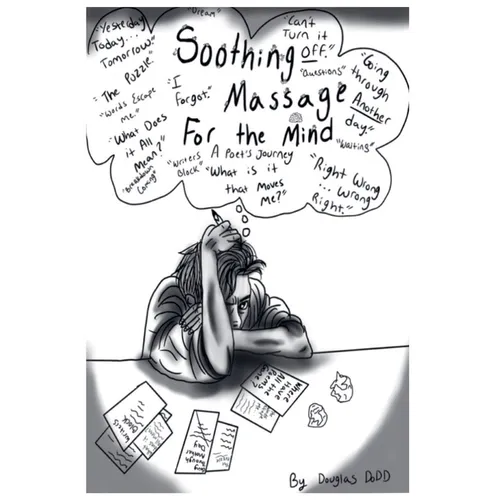 "Dream"
"Yesterday
Today...
Tomorrow."
"The Puzzle."
"Words Escape
Me."
"What Does
it All
Mean?"
"Breakdown
Coming"
Soothing
Massage
For the Mind
A Poet's Journey
"I
Forgot."
"Writers
Block"
"What is it
that Moves
Me?"
"Can't
Turn it
OFF."
"Questions"
"Going
through
Another
day."
"Waiting"
"Right Wrong
... Wrong
Right."
Where Have
All the
Poems
Gone?
Writers
Block
Day
By Douglas DoDD